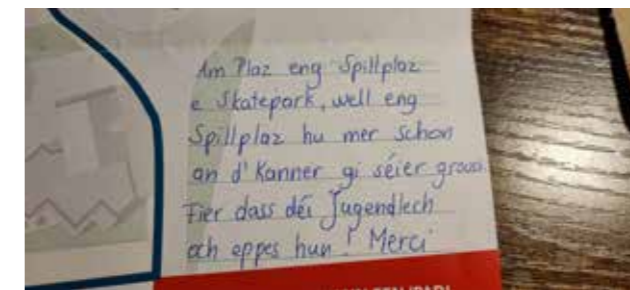 Am Plaz eng Spillplaz
e Skatepark, well eng
Spillplaz hu mer schon
an d'Kanner gi séier grouss.
Fier dass déi Jugendlech
och eppes hun! Merci